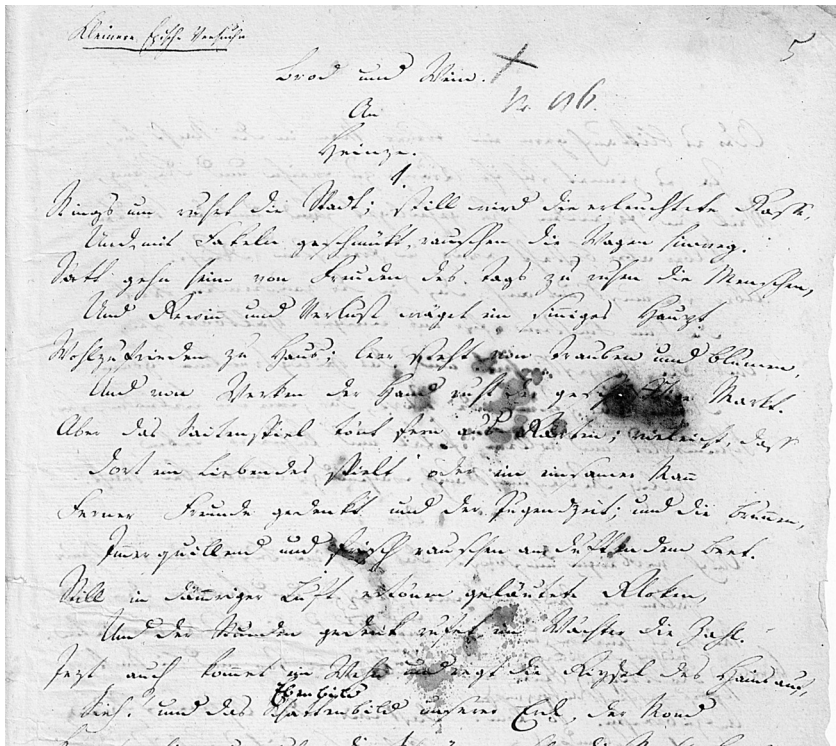 Kleinere
5
Brod und Wein.
An
Heinze.
1.
Rings um ruhet die Stadt; still wird die erleuchtete Gasse,
Und, mit Fakeln geschmükt, rauschen die Wagen hinweg.
Satt gehn heim von Freuden des Tags zu ruhen die Menschen,
Und Gewinn und Verlust wäget ein sinniges Haupt
Wohlzufrieden zu Haus; leer steht von Trauben und Blumen,
Und von Werken der Hand ruht der Markt.
Aber das Saitenspiel tönt fern aus Gärten; vieleicht, daß
Dort ein Liebendes spielt oder ein einsamer Mann
Ferner Freunde gedenkt und der Jugendzeit; und die Brunnen,
Immerquillend und frisch rauschen an duftendem Beet.
Still in dämmriger Luft ertönen geläutete Gloken,
Und der Stunden gedenk rufet ein Wächter die Zahl.
Jezt auch kommet ein Wehn und regt die Gipfel des Hains auf,
Ebenbild
Sieh! und das Schattenbild unserer Erde, der Mond